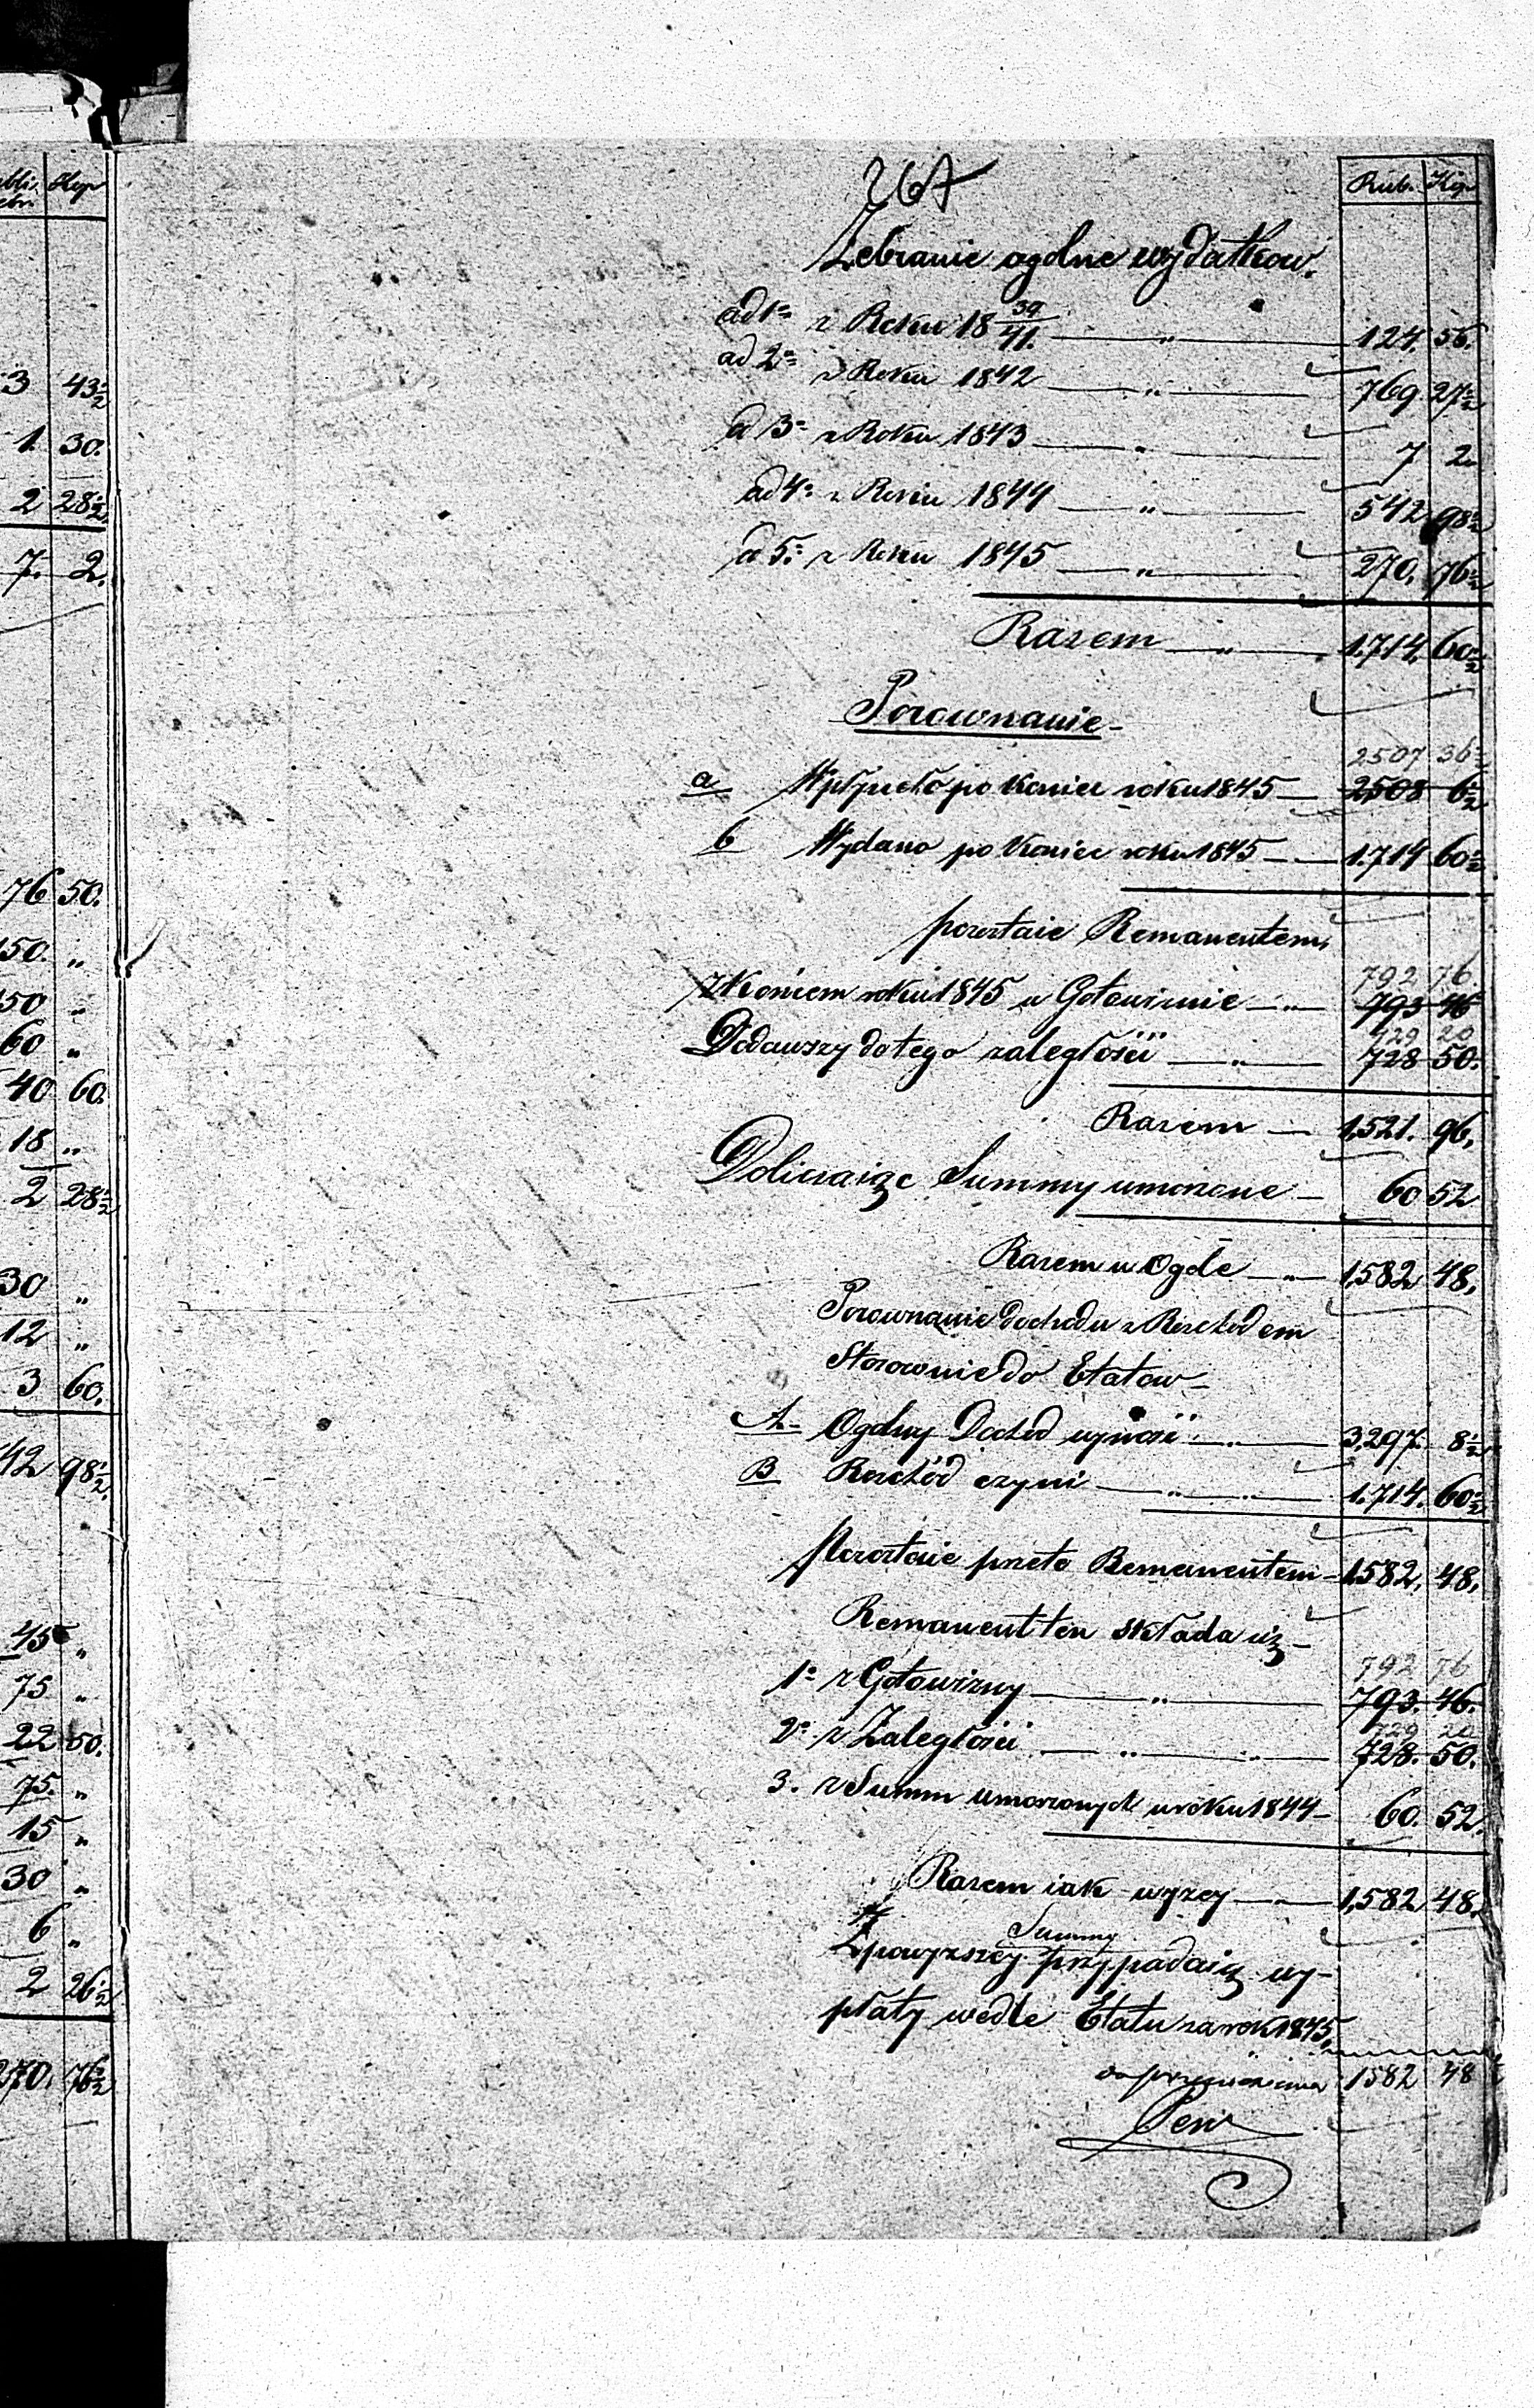 Kop
3 43½
1. 30.
2 28½
7. 2.
76 50.
150. „
50 „
60 „
40 60.
18 „
2 28½
30 „
12 „
3 60.
42 98½
45 „
75 „
22 50.
75. „
15 „
30 „
6 „
2 26½
270. 76½
267
Rub. Kop
Zebranie ogolne wydatkow.
ad 1o z Roku 18 39/41. — „ — 124. 56.
ad 2o z Roku 1842 — „ — 769. 27½
ad 3o z Roku 1843 — „ — 7 2.
ad 4o z Roku 1844 — „ — 542 98½
ad 5o z Roku 1845 — „ — 270. 76½
Razem — „ — 1.714. 60½
Porownanie -
2507 36½
a Wpłynęło po koniec roku 1845 — 2508 6½
b Wydano po koniec roku 1845 — 1.714 60½
pozostaie Remanentem,
792 76
z końcem roku 1845 w Gotowiznie — „ 793 46
729 20
Dodawszy do tego zaległości — „ — 728 50.
Razem — 1,521. 96.
Doliczaiąc Summy umorzone — 60 52
Razem w Ogóle — „ — 1,582 48.
Porownanie dochodu z Rozchodem
Stosownie do Etatow -
A- Ogolny Dochod wynosi — „ — 3,297. 8½
B Rozchód czyni — „ — „ — 1.714. 60½
Pozostaie przeto Remanentem - 1582. 48.
Remanent ten składa się -
792 76
1o z Gotowizny — „ — 793. 46.
729 20
2o z Zaległości — „ — „ — 728. 50.
3. z Summ umorzonych w roku 1844 - 60. 52.
Razem iak wyzey — „ — 1,582 48.
Summy
Z powyzszey przypadaią wy-
płaty wedle Etatu za rok 1845.
do przeniesienia 1582 48